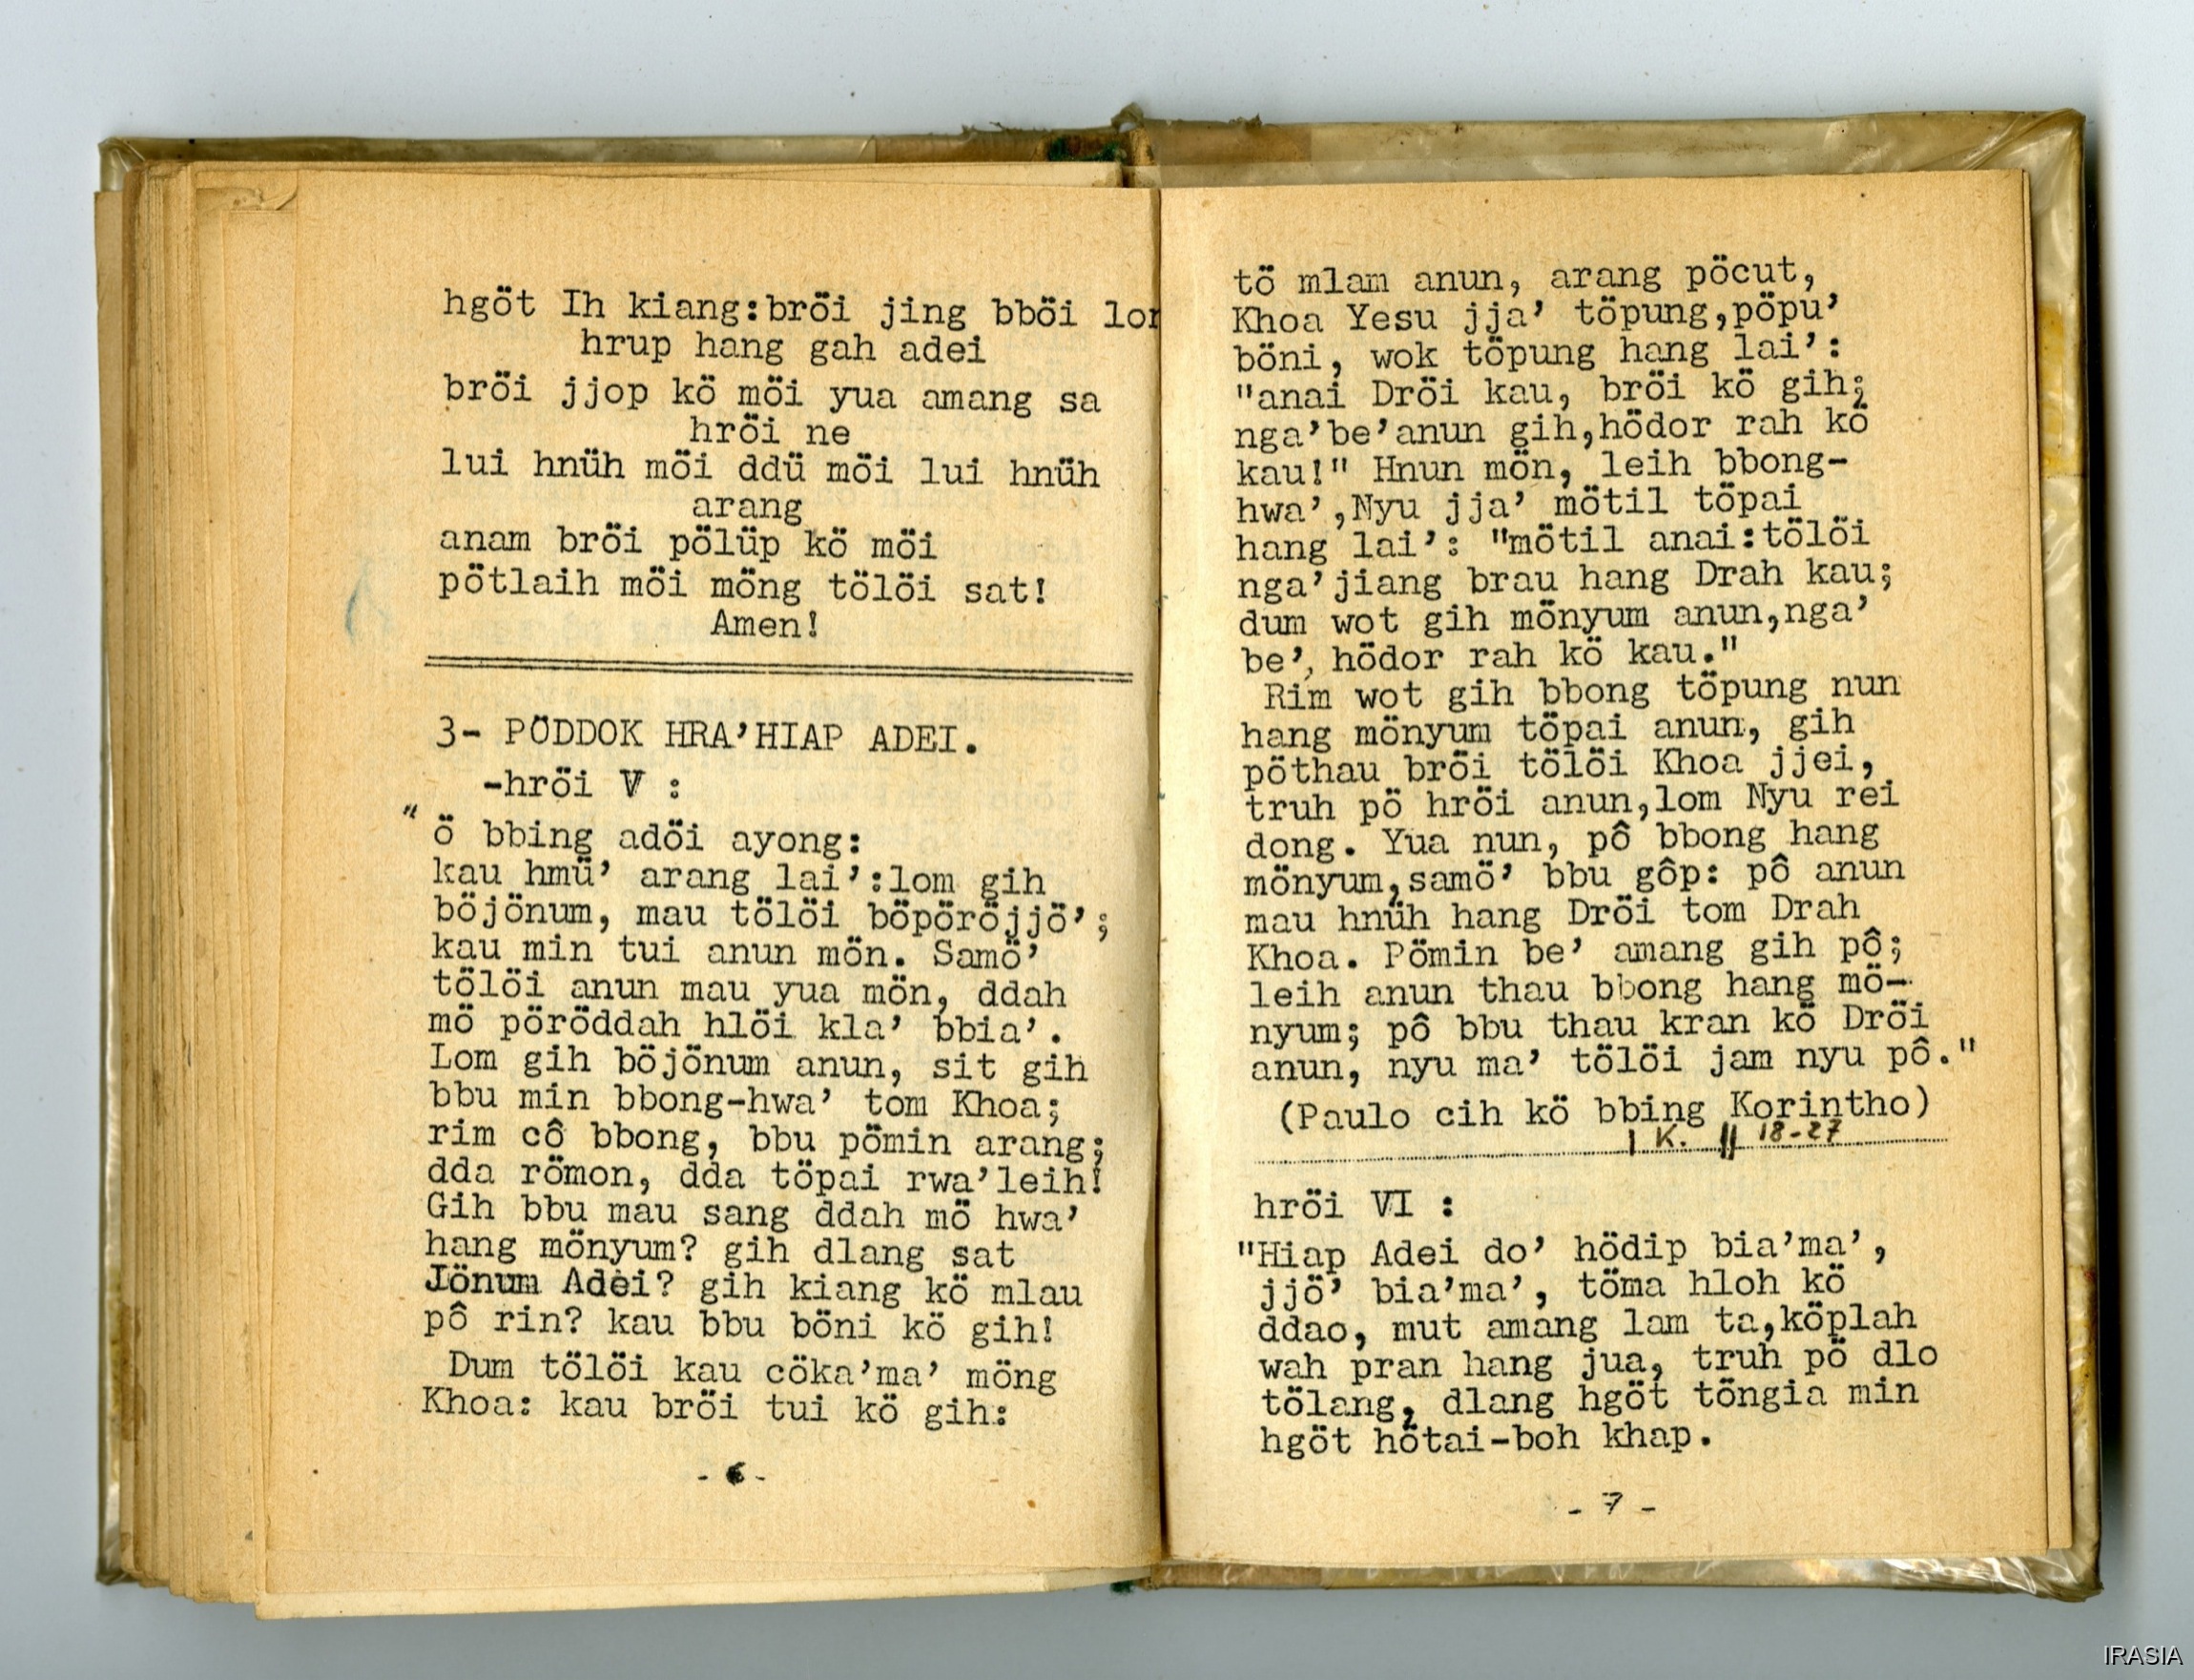 hgöt Ih kiang:bröi jing bböi
hrup hang gah adei
bröi jjop kö möi yua amang sa
hröi ne
lui hnüh möi ddü möi lui hnüh
arang
anam bröi pölüp kö möi
pötlaih möi möng tölöi sat!
Amen!
3- PÖDDOK HRA’HIAP ADEI.
-hröi V :
" ö bbing adöi ayong:
kau hmü’ arang lai’:lom gih
böjönum, mau tölöi böpöröjjö’;
kau min tui anun mön. Samö’
tölöi anun mau yua mön, ddah
mö pöröddah hlöi kla’ bbia’.
Lom gih böjönum anun, sit gih
bbu min bbong-hwa’ tom Khoa;
rim cô bbong, bbu pömin arang;
dda römon, dda töpai rwa’leih!
Gih bbu mau sang ddah mö hwa’
hang mönyum? gih dlang sat
Jönum Adei? gih kiang kö mlau
pô rin? kau bbu böni kö gih!
Dum tölöi kau cöka’ma’ möng
Khoa: kau bröi tui kö gih:
- 6 -
tö mlam anun, arang pöcut,
Khoa Yesu jja’ töpung,pöpu’
böni, wok töpung hang lai’:
"anai Dröi kau, bröi kö gih;
nga’be’anun gih,hödor rah kö
kau!" Hnun mön, leih bbong-
hwa’,Nyu jja’ mötil töpai
hang lai’: "mötil anai:tölöi
nga’jiang brau hang Drah kau;
dum wot gih mönyum anun,nga’
be’, hödor rah kö kau."
Rim wot gih bbong töpung nun
hang mönyum töpai anun, gih
pöthau bröi tölöi Khoa jjei,
truh pö hröi anun,lom Nyu rei
dong. Yua nun, pô bbong hang
mönyum,samö’ bbu gôp: pô anun
mau hnüh hang Dröi tom Drah
Khoa. Pömin be’ amang gih pô;
leih anun thau bbong hang mö-
nyum; pô bbu thau kran kö Dröi
anun, nyu ma’ tölöi jam nyu pô."
(Paulo cih kö bbing Korintho)
I K. 11 18-27
hröi VI :
"Hiap Adei do’ hödip bia’ma’,
jjö’ bia’ma’, töma hloh kö
ddao, mut amang lam ta,köplah
wah pran hang jua, truh pö dlo
tölang, dlang hgöt töngia min
hgöt hötai-boh khap.
- 7 -
IRASIA